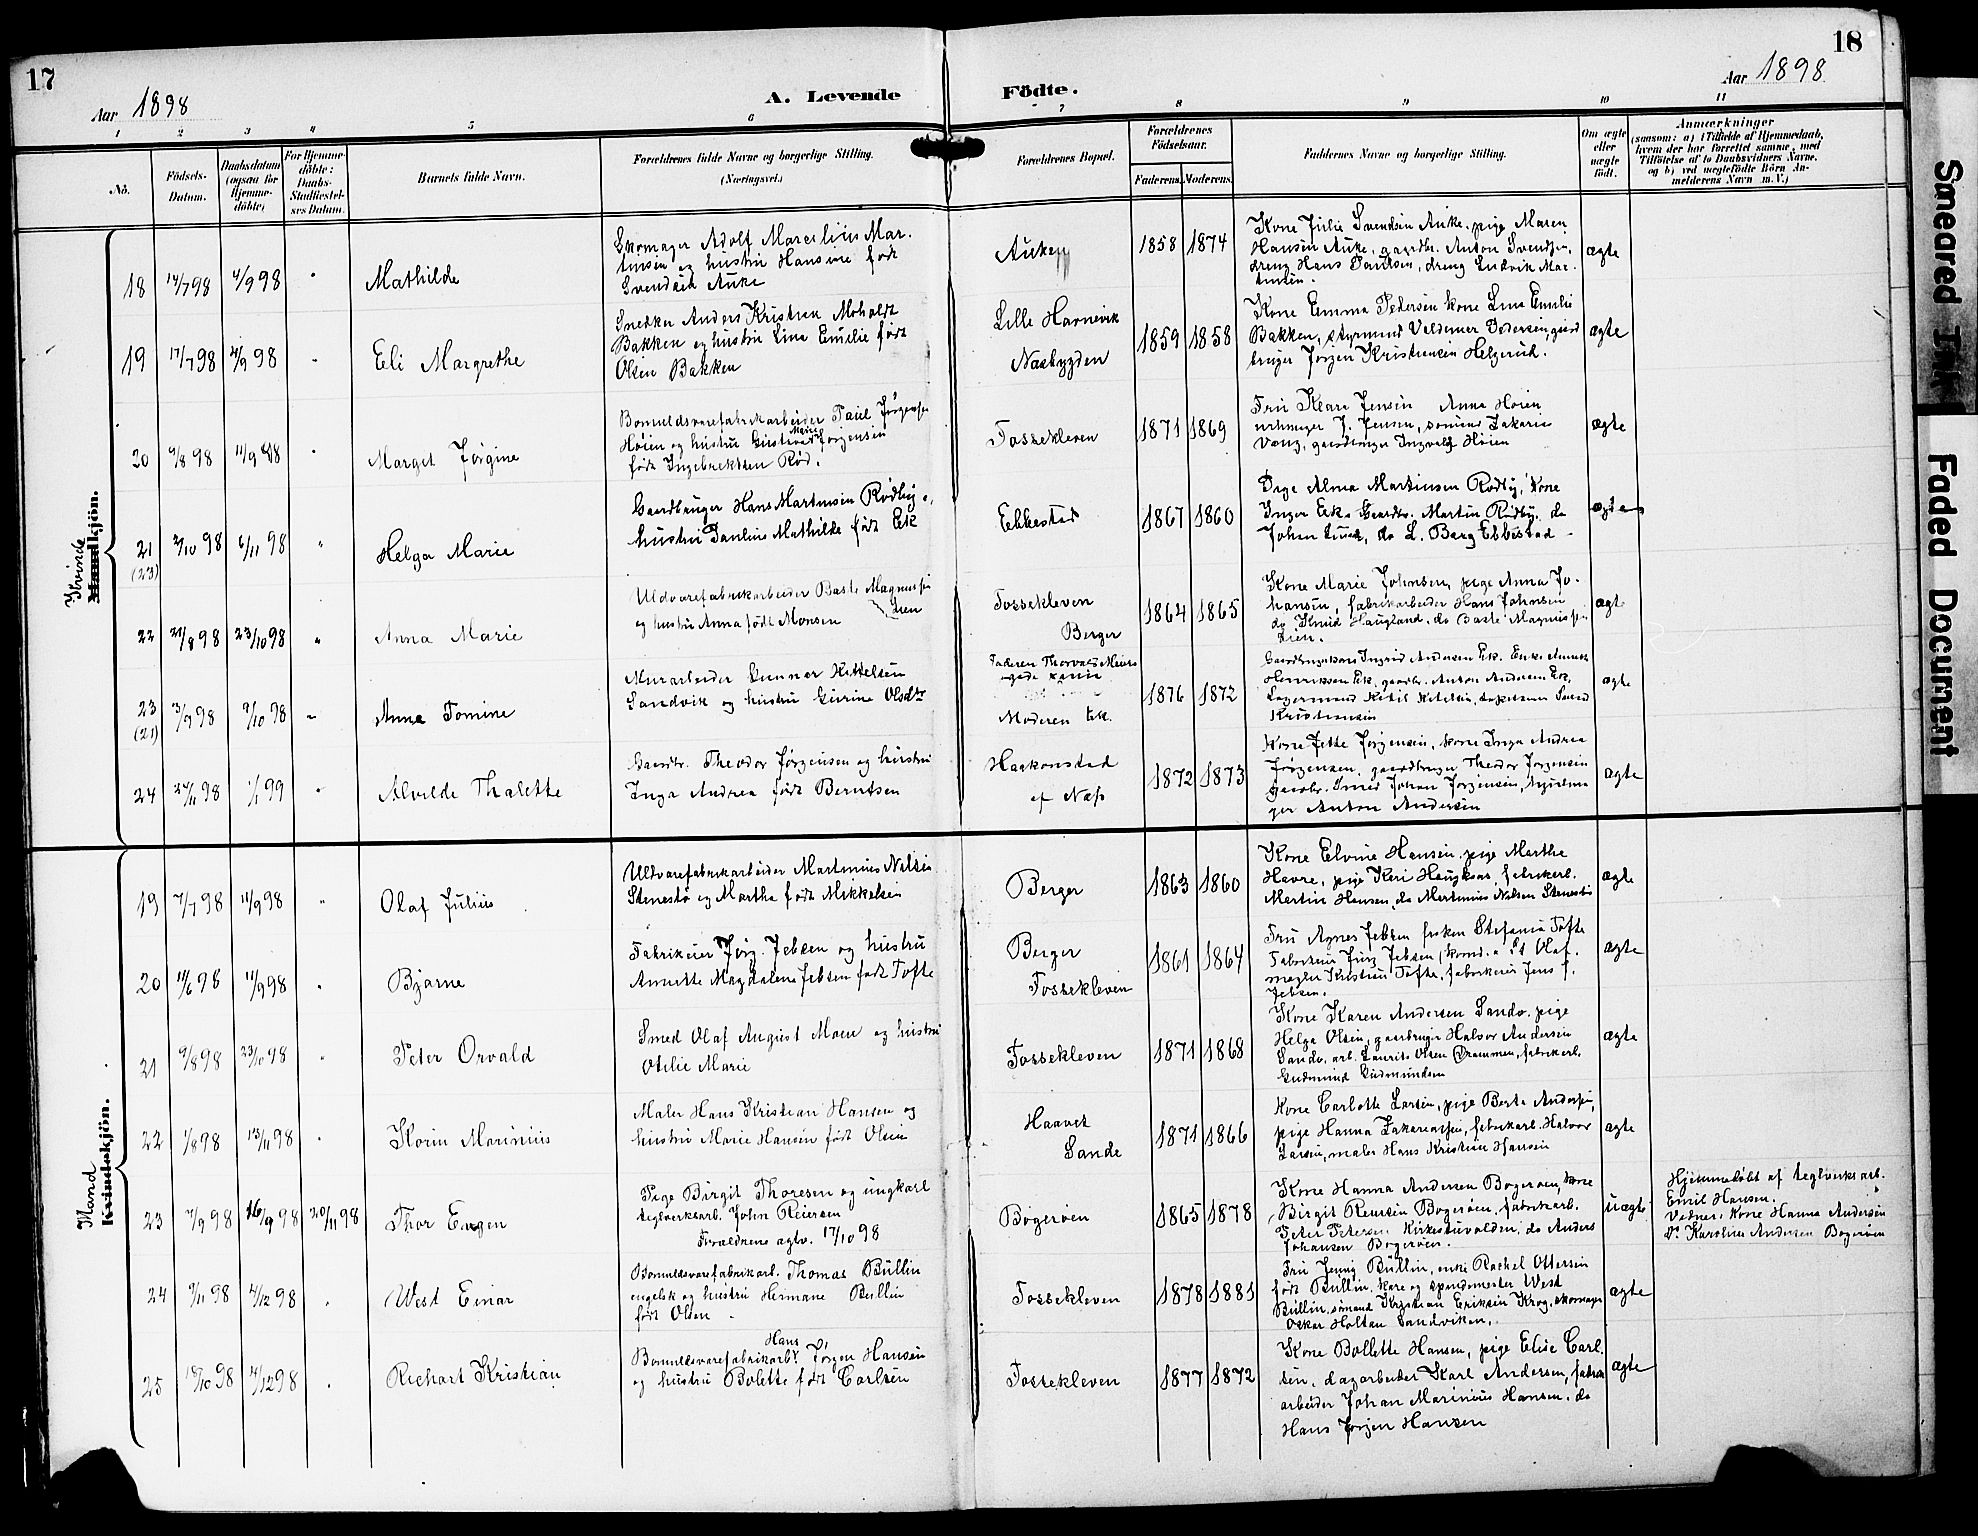 17
Aar 1898
A. Levende
Födte.
Aar 1898
18
1 2 3 4 5 6 7 8 9 10 11
No.
Födsels-
Datum.
Daabsdatum
(ogsaa for
Hjemme-
döbte)
For Hjemme-
döbte:
Daabs-
Stadfæstel-
ses Datum.
Barnets fulde Navn.
Forældrenes fulde Navne og borgerlige Stilling.
(Næringsvei.)
Forældrenes Bopæl.
Forældrenes
Födselsaar.
Faderens. Moderens.
Faddernes Navne og borgerlige Stilling.
Om ægte
eller
uægte
födt.
Anmærkninger
(saasom: a) i Tilfælde af Hjemmedaab,
hvem der har forrettet samme, med
Tilföielse af to Daabsvidners Navne,
og b) ved uægtefödte Börn An-
melderens Navn m. V.)
Kvinde
Mandkjön.
18 14/7 98 4/9 98 " Mathilde
Skomager Adolf Marcelius Mar-
tinsen og hustru Hansine født
Svendsen Auke
Auken
1858 1874
Kone Julie Svendsen Auke, pige Maren
Hansen Auke, gaardbr. Anton Svendsen,
dreng Hans Paulsen, dreng Ludvik Mar-
tinsen.
ægte
19 17/7 98 4/9 98 " Eli Margrethe
Snedker Anders Kristian Moholdt
Bakken og hustru Lina Emilie født
Olsen Bakken
Lille Havnevik
Nesbygden
1859 1858
Kone Emma Pedersen kone Lina Emilie
Bakken, styrmand Valdemar Pedersen, gaard
bruger Jørgen Kristiansen Helgerud.
ægte
20 9/8 98 11/9 98 " Margit Jørgine
Bomuldsvarefabrikarbeider Paul Jørgensen
Høien og hustru Gustava Marie Jørgensen
født Ingebrektsen Rød.
Fossekleven
1871 1869
Fru Klara Jensen Anna Høien
urmager J. Jensen, sømand Zakarias
Vang, gaardbruger Ingvald Høien
ægte
21
(23) 2/10 98 6/11 98 " Helga Marie
Gaardbruger Hans Martinsen Rødby o.
hustru Pauline Mathilde født Ek
Ebbestad
1867 1860
Pige Alma Martinsen Rødby, kone
Inger Ek. Gaardbr. Martin Rødby, do
Johan Lund, do L. Berg Ebbestad
ægte
22 21/8 98 23/10 98 " Anna Marie
Uldvarefabrikarbeider Baste Magnussen
Lien
og hustru Anna født Monsen
Fossekleven
Berger
1864 1865
Kone Marie Johnsen, pige Anna Jo-
hansen, fabrikarbeider Hans Johnsen
do Knud Haugland, do Baste Magnussen
Lien.
ægte
23
(21) 3/9 98 9/10 98 " Anna Tomine
Murarbeider Gunnar Kittelsen
Sandvik og hustru Gurine Olsdtr
Faderen Thorvald Meiers
gade
Moderen Ek.
1876 1872
Gaardbrugerkone Ingrid Andersen Ek. Enke
Henriksen Ek, gaardbr. Anton Andersen Ek,
Lagermand Ketil Ketelsen,
Kristiansen
ægte
24 27/11 98 1/1 99 " Alvilde Thalette
Gaardbr. Theodor Jørgensen og hustru
Inga Andrea født Berntsen
Haakonstad
af Næs
1872 1873
Kone Jette Jørgensen, kone Inga Andrea
Jørgensen, gaardbruger Theodor Jørgensen
gaardbr. Smed Johan Jørgensen,
ger Anton Andersen
ægte
Mand
Kvindekjön.
19 7/7 98 11/9 98 " Olaf Julius
Uldvarefabrikarbeider Martinius Nilsen
Stenestø og Marthe født Mikkelsen
Berger
1863 1860
Kone Elvine Hansen, pige Marthe
Havre, pige Kari Haugsnes, fabrikarb.
Martin Hansen, do Martinius Nilsen Stenestø
ægte
20 11/6 98 11/9 98 " Bjarne
Fabrikeier Jørg. Jebsen og hustru
Annette Magdalena Jebsen født Tofte
Berger
Fossekleven
1861 1864
Fru Agnes Jebsen frøken Stefania Tofte
Fabrikeier Jürg Jebsen, (komd. a St. Olaf.
megler Kristian Tofte, fabrikeier Jens J.
Jebsen.
ægte
21 9/8 98 23/10 98 " Peter Orvald
Smed Olaf August Moen og hustru
Otilie Marie
Fossekleven
1871 1868
Kone Karen Andersen Sandø, pige
Helga Olsen, gaardbruger Halvor Andersen
Sandø, arb. Laurits Olsen Drammen, fabrikarb.
Gudmund Gudmundsen
ægte
22 1/8 98 13/11 98 " Korin Marinius
Maler Hans Kristian Hansen og
hustru Marie Hansen født Olsen
Haavet
Sande
1871 1866
Kone Carlotte Larsen, pige Berta Andersen,
pige Hanna Zakariassen, fabrikarb. Halvor
Larsen, maler Hans Kristian Hansen
ægte
23 7/9 98 16/9 98 20/11 98 Thor Eugen
Pige Birgit Thoresen og ungkarl
teglverksarb. John Reiersen
Forældrene agtv. 17/10 98
Bogerøen
1865 1878
Kone Hanna Andersen Bogerøen, kone
Birgit Reiersen Bogerøen, fabrikarb.
Peter Petersen Kirkestuvolden, do Anders
Johansen Bogerøen.
uægte
Hjemmedøbt af teglverksarb.
Emil Hansen.
Vidner: Kone Hanna Andersen
Do Karoline Andersen Bogerøen
24 9/11 98 4/12 98 " West Einar
Bomuldsvarefabrikarb. Thomas Bullin
engelsk og hustru Hermane Bullin
født Olsen
Fossekleven
1878 1881
Fru Jenny Bullin, enke Rachel Ottersen
født Bullin, Kone og spindemester West
Bullin, sømand Kristian Eriksen Krog, skomager
Oskar Holtan Sandviken.
ægte
25 18/10 98 4/12 98 " Richart Kristian
Bomuldsvarefabrikarb. Hans Jørgen Hansen
og hustru Bolette født Carlsen
Fossekleven
1877 1872
Kone Bollette Hansen, pige Elise Carl-
sen, dagarbeider Karl Andersen, fabrik
arbeider Johan Marinius Hansen, do
Hans Jørgen Hansen
ægte
Smeared Ink
Faded Document